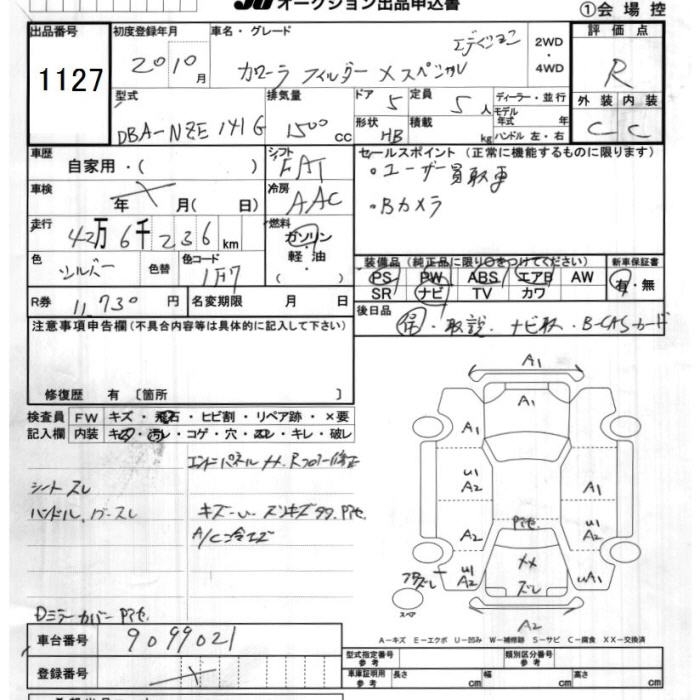 オークション出品申込書
①会場控
出品番号
1127
初度登録年月
2010月
車名・グレード
カローラ フィルダー Xスペシャル
2WD
・
4WD
評価点
R
外装 内装
C C
型式
DBA-NZE141G
排気量
1500cc
ドア 5
定員 5人
形状 HB
積載 kg
ディーラー・並行
モデル年式 年
ハンドル 左・右
車歴
自家用・( )
シフト
FAT
車検
年 月( 日)
冷房
AAC
走行
42万6千236km
燃料
ガソリン
軽油
( )
色
シルバー
色替
色コード
1F7
R券
11,730円
名変期限 月 日
セールスポイント(正常に機能するものに限ります)
・ユーザー買取車
・Bカメラ
装備品(純正品に限り○をつけてください)
新車保証書
PS PW ABS エアB AW
SR ナビ TV カワ
有・無
後日品
保・取説・ナビ取・B-CASカード
注意事項申告欄(不具合内容等は具体的に記入して下さい)
修復歴 有 〔箇所 〕
検査員記入欄
FW キズ・飛石・ヒビ割・リペア跡・×要
内装 キズ・汚レ・コゲ・穴・スレ・キレ・破レ
エンドパネルXX、Rフロアー修正
シートスレ
ハンドル、
A/C冷エズ
Dミラーカバー Pヤセ
車台番号
9099021
登録番号
A1
A1
A1
U1
A2
A1
Pヤセ
A2
U1
A2
XX
ズレ
U1
A2
UA1
A2
スペア
A-キズ E-エクボ U-凹み W-補修跡 S-サビ C-腐食 XX-交換済
型式指定番号
参考
類別区分番号
参考
車庫証明用
参考
長さ cm
幅 cm
高さ cm